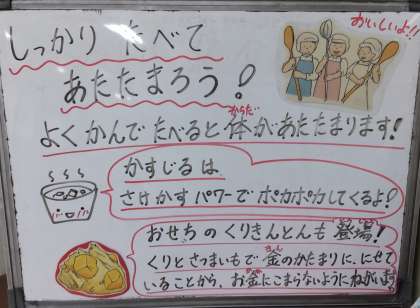 しっかり たべて
おいしいよ!!
あたたまろう!
からだ
よく かんで たべると 体が あたたまります!
かすじるは
さけかすパワーで ポカポカしてくるよ?
おせちの くりきんとんも 登場!
くりとさつまいもで 金のかたまりに、にせて
いることから、お金にこまらないようにねがいます